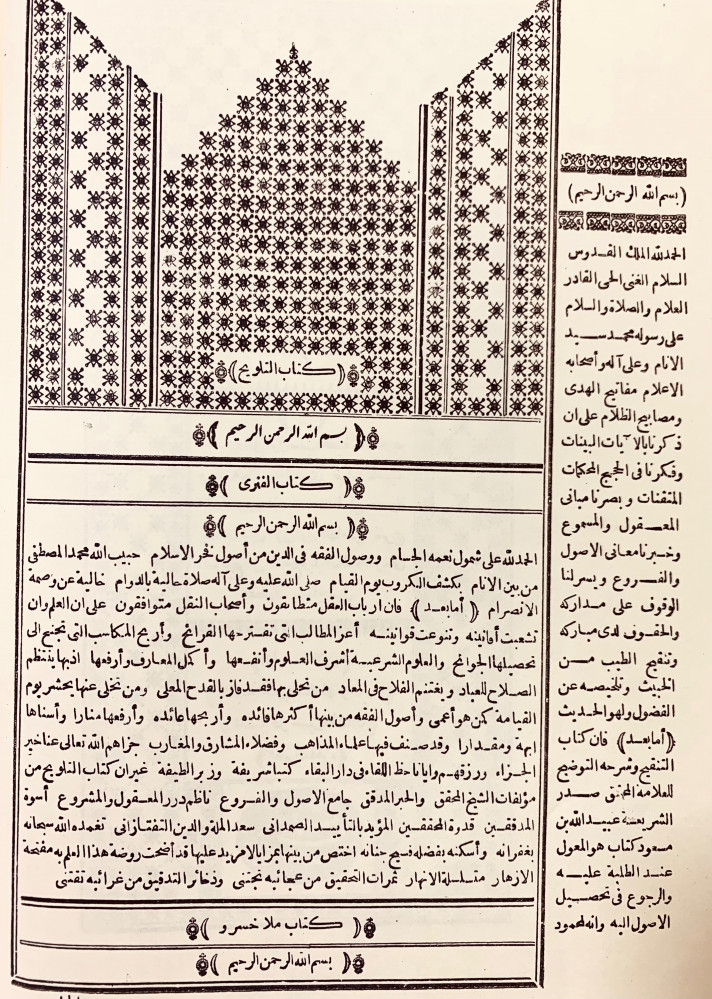 ﴿ كتاب التلويح ﴾
﴿ بسم الله الرحمن الرحيم ﴾
﴿ كتاب الفنرى ﴾
﴿ بسم الله الرحمن الرحيم ﴾
الحمد لله على شمول نعمه الجسام ووصول الفقه فى الدين من أصول فخر الاسلام حبيب الله محمد المصطفى
من بين الانام بكشف الكروب يوم القيام صلى الله عليه وعلى آله صلاة عالية بالدوام خالية عن وصمة
الانصرام ﴿ أما بعد ﴾ فان أرباب العقل متطابقون وأصحاب النقل متوافقون على ان العلم وان
تشعبت أفانينه وتنوعت قوانينه أعز المطالب التى تقترحها القرائح وأربح المكاسب التى تجتمع الى
تحصيلها الجوانح والعلوم الشرعية أشرف العلوم وأنفعها وأكمل المعارف وأرفعها اذ بها ينتظم
الصلاح للعباد ويغتنم الفلاح فى المعاد من تحلى بها فقد فاز بالقدح المعلى ومن تخلى عنها يحشر يوم
القيامة كمن هو أعمى وأصول الفقه من بينها أكثرها فائده وأربحها عائده وأرفعها منارا وأسناها
ابهة ومقدارا وقد صنف فيها علماء المذاهب وفضلاء المشارق والمغارب جزاهم الله تعالى عنا خير
الجزاء ورزقهم وايانا حظ اللقاء فى دار البقاء كتبا شريفة وزبر الطيفة غير ان كتاب التلويح من
مؤلفات الشيخ المحقق والحبر المدقق جامع الاصول والفروع ناظم درر المعقول والمشروع أسوة
المدققين قدوة المحققين المؤيد بالتأييد الصمدانى سعد الملة والدين التفتازانى تغمده الله سبحانه
بغفرانه وأسكنه بفضله فسيح جنانه اختص من بينها بمزايا لا مزيد عليها قد أضحت روضة هذا العلم به مفتحة
الازهار متسلسلة الانهار ثمرات التحقيق من عجائبه تجتنى وذخائر التدقيق من غرائبه تقتنى
﴿ كتاب ملا خسرو ﴾
﴿ بسم الله الرحمن الرحيم ﴾
(بسم الله الرحمن الرحيم)
الحمد لله الملك القدوس
السلام الغنى الحى القادر
العلام والصلاة والسلام
على رسوله محمد سيد
الانام وعلى آله وأصحابه
الاعلام مفاتيح الهدى
ومصابيح الظلام على ان
ذكرنا بالآيات البينات
وفكرنا فى الحجج المحكمات
المتقنات وبصرنا مبانى
المعقول والمسموع
وخبرنا معانى الاصول
والفروع ويسرلنا
الوقوف على مداركه
والحقوف لدى مباركه
وتنقيح الطيب من
الخبيث وتلخيصه عن
الفضول ولهو الحديث
﴿أما بعد﴾ فان كتاب
التنقيح وشرحه التوضيح
للعلامة المحقق صدر
الشريعة عبيد الله بن
مسعود كتاب هو المعول
عند الطلبة عليه
والرجوع فى تحصيل
الاصول اليه وانه لمحمود